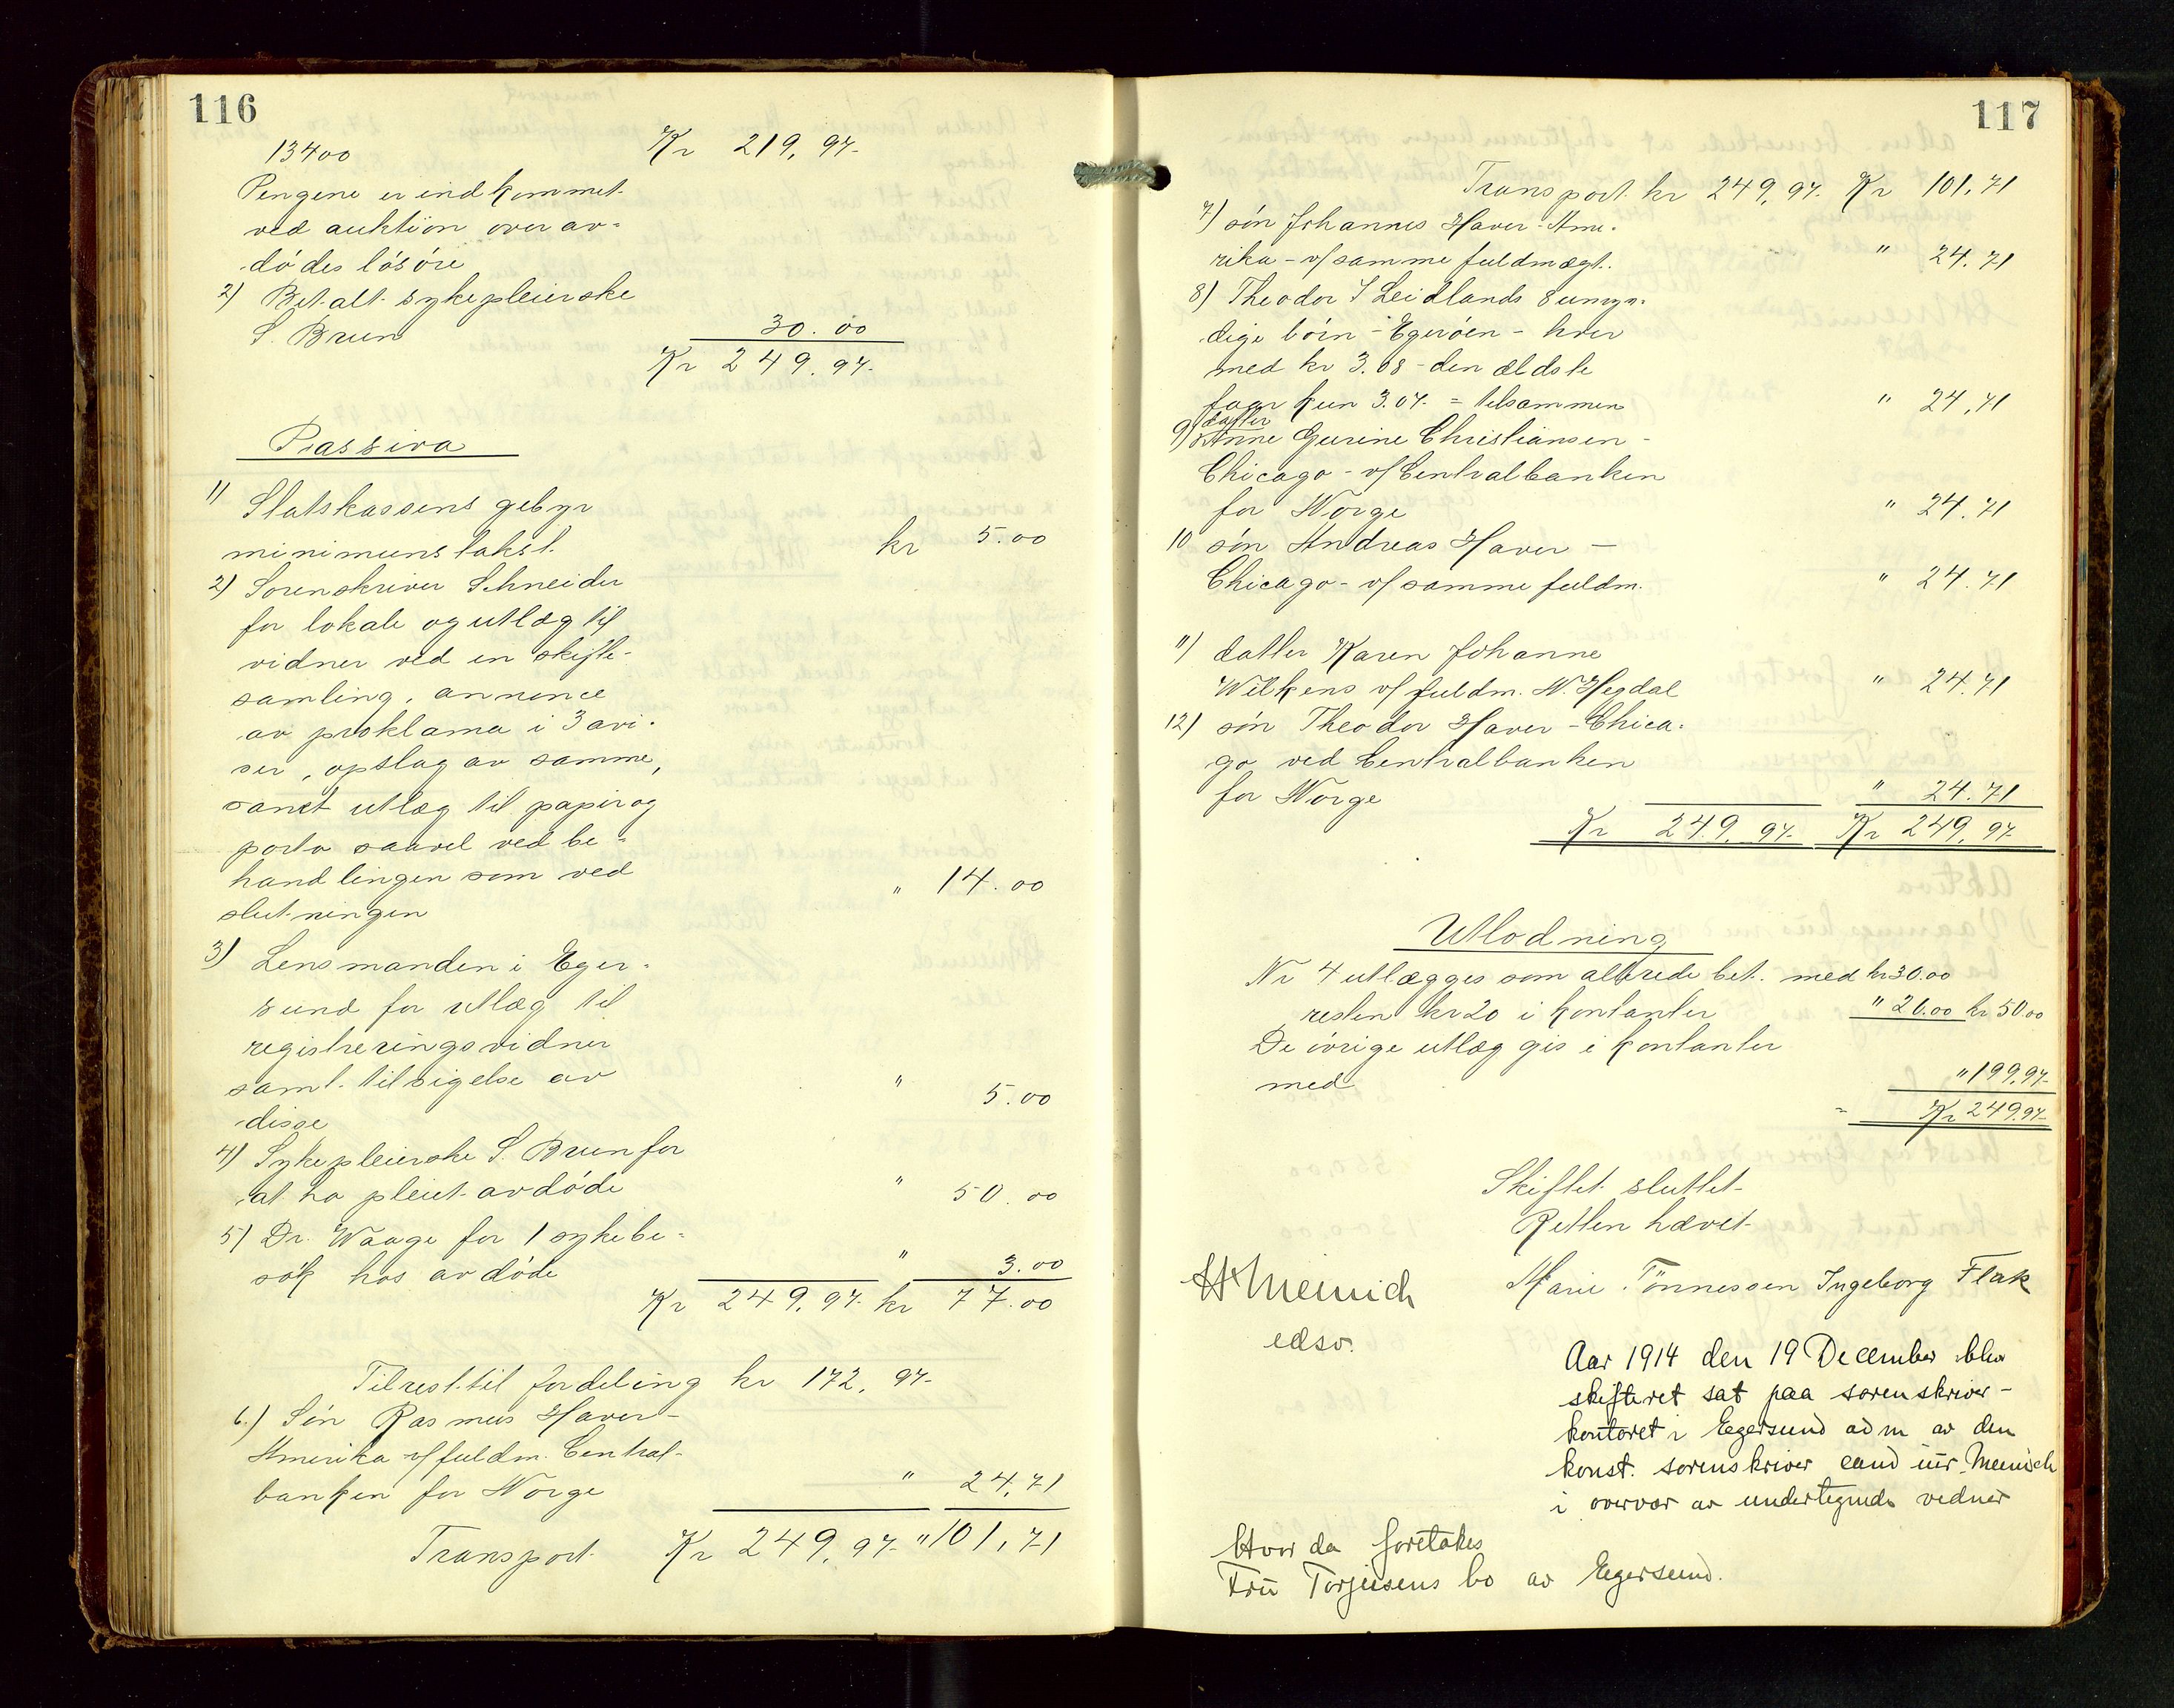 116
13400 Kr 219,97
Pengene er indkommet
ved auktion over av-
dødes løsøre
2) Betalt sykepleierske
S. Bruun 30.00
Kr 249.97
Passiva
1) Statskassens gebyr
minimumstakst. kr 5.00
2) Sorenskriver Schneider
for lokale og utlæg til
vidner ved en skifte-
samling, annonce
av proklama i 3 avi-
ser, opslag av samme,
samt utlæg til papir og
porto saavel ved be-
handlingen som ved " 14.00
slutningen
3) Lensmanden i Eger-
sund for utlæg til
registreringsvidner
samt tilsigelse av " 5.00
disse
4) Sykepleierske S. Bruun for
at ha pleiet avdøde " 50.00
5) Dr. Waage for 1 sykebe-
søk hos avdøde " 3.00
Kr 249,97 kr 77.00
Tilrest til fordeling kr 172,97
6.) Søn Rasmus Haver-
Amerika v/ fuldm. Central-
banken for Norge " 24,71
Transport Kr 249,97 " 101,71
117
Transport kr 249,97 Kr 101,71
7) søn Johannes Haver-Ame-
rika - v/ samme fuldmægt. " 24.71
8) Theodor T Leidlands 8 umyn-
dige børn - Egerøen - hver
med kr 3.08 - den ældste
faar kun 3.07 = tilsammen " 24,71
9) datter Anne Gurine Christiansen -
Chicago - v/ Centralbanken
for Norge " 24.71
10 søn Andreas Haver -
Chicago - v/ samme fuldm. " 24.71
11) datter Karen Johanne
Wilkens v/ fuldm. N. Hegdal " 24.71
12) søn Theodor Haver - Chica-
go ved Centralbanken
for Norge " 24.71
Kr 249,97 Kr 249,97
Utlodning
Nr 4 utlægges som allerede bet. med kr 30.00
resten kr 20 i kontanter " 20.00 kr 50.00
De øvrige utlæg gis i kontanter
med " 199,97
= Kr 249.97
Skiftet sluttet
Retten hævet
Meinich Marie Tönnessen Ingeborg Flak
edsv.
Aar 1914 den 19 December blev
skifteret sat paa sorenskriver-
kontoret i Egersund adm av den
konst. sorenskriver cand jur. Meinich
i overvær av undertegnede vidner
Hvor da foretokes
Fru Torjusens bo av Egersund.